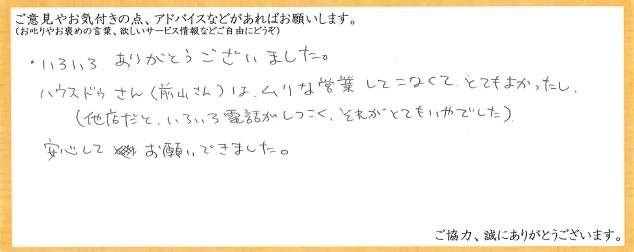 ご意見やお気付きの点、アドバイスなどがあればお願いします。
(お叱りやお褒めの言葉、欲しいサービス情報などご自由にどうぞ)
・いろいろ ありがとうございました。
ハウスドゥさん(前山さん)は、ムリな営業してこなくて、とてもよかったし、
(他店だと、いろいろ電話がしつこく、それがとてもいやでした)
安心して お願いできました。
ご協力、誠にありがとうございます。